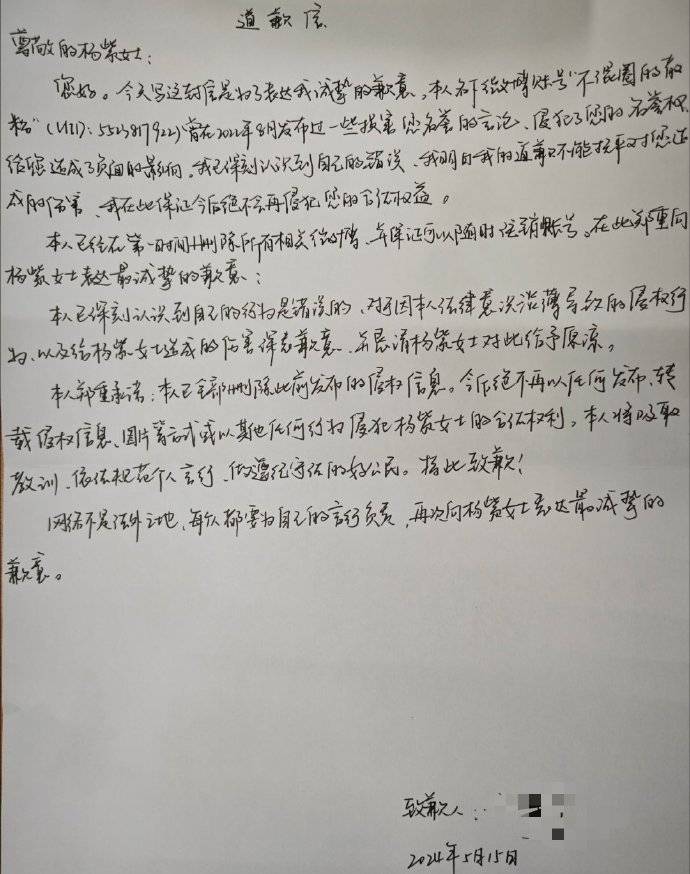 道歉信
尊敬的杨紫女士：
您好。今天写这封信是为了表达我诚挚的歉意。本人名下微博账号“不混圈的散
粉”（UID：5523817922）曾在2022年8月发布过一些损害您名誉的言论、侵犯了您的名誉权
给您造成了负面的影响。我已深刻认识到自己的错误、我明白我的道歉不能抚平对您造
成的伤害、我在此保证今后绝不会再侵犯您的合法权益。
本人已经在第一时间删除所有相关微博、并保证可以随时注销账号。在此郑重向
杨紫女士表达最诚挚的歉意：
本人已深刻认识到自己的行为是错误的、对于因本人法律意识淡薄导致的侵权行
为、以及给杨紫女士造成的伤害深表歉意、并恳请杨紫女士对此给予原凉。
本人郑重承诺：本人已全部删除此前发布的侵权信息。今后绝不再以任何发布、转
载侵权信息、图片等方式或以其他任何行为侵犯杨紫女士的合法权利。本人将吸取
教训、依法规范个人言行、做遵纪守法的好公民。借此致歉！
网络不是法外之地、每个人都要为自己的言行负责，再次向杨紫女士表达最诚挚的
歉意。
致歉人：
2024年5月15日